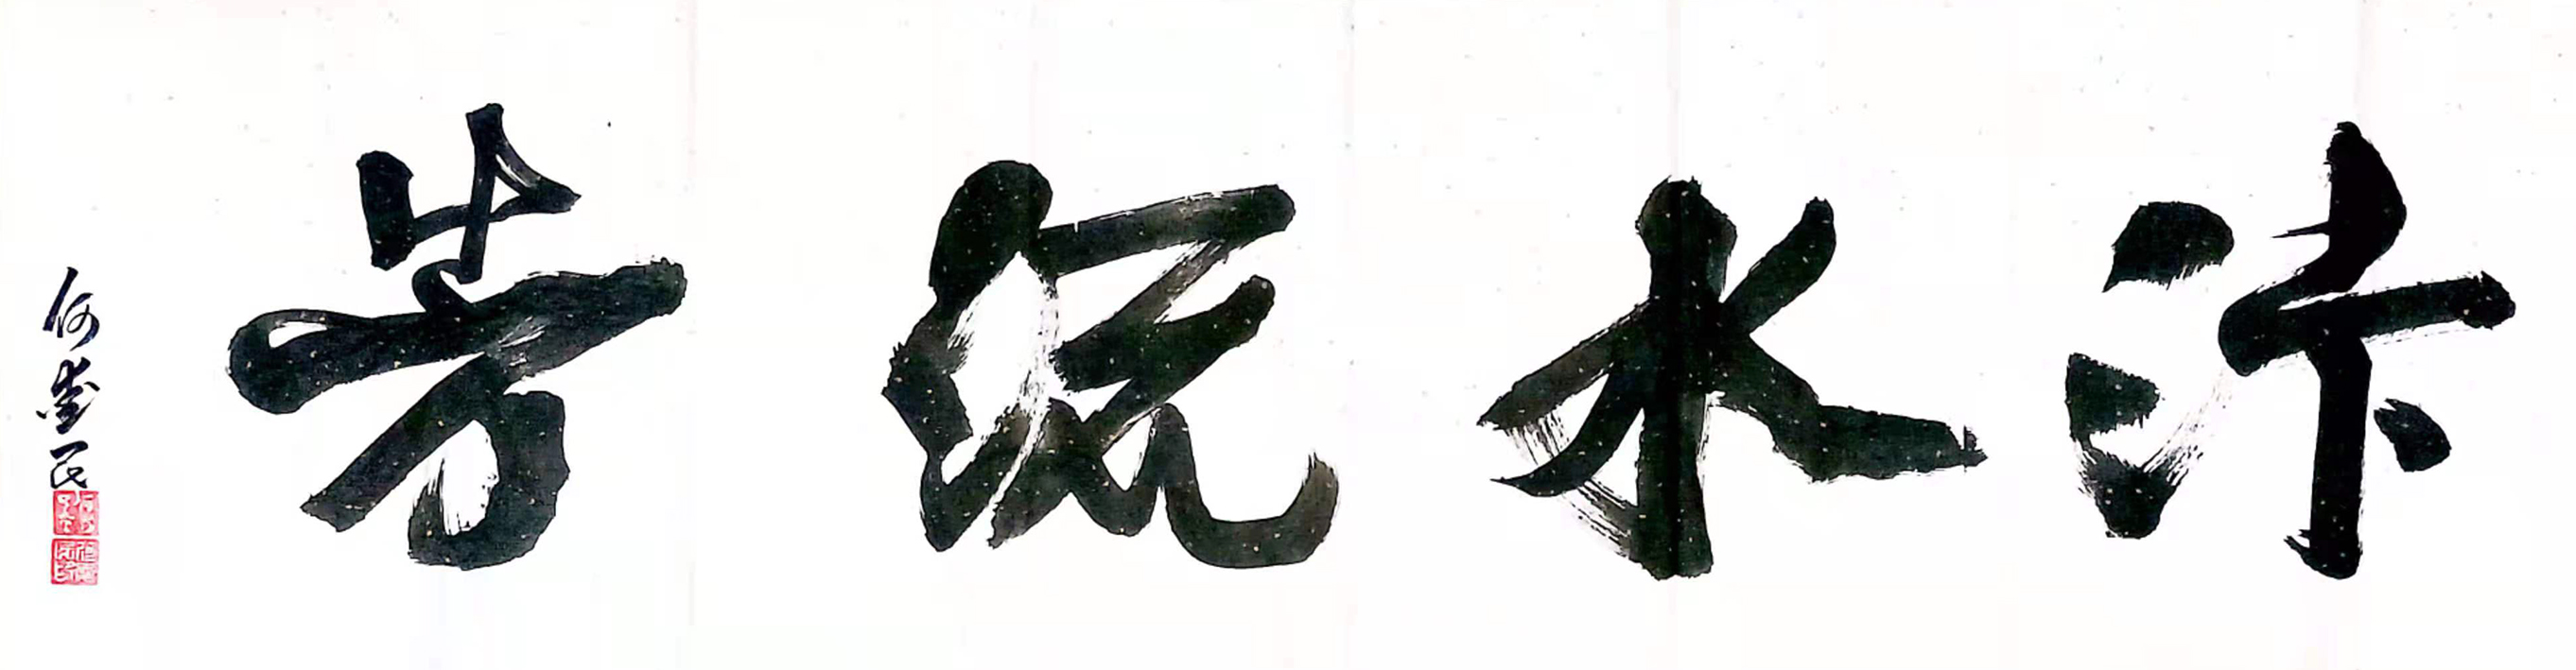 汴水流芳
何爱民